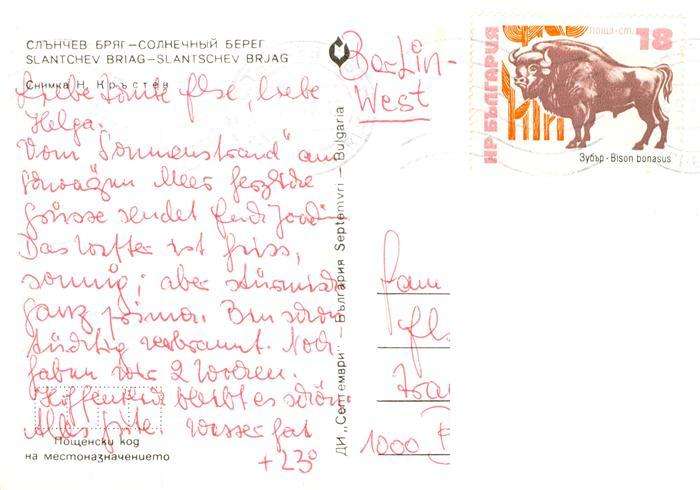 СЛЪНЧЕВ БРЯГ—СОЛНЕЧНЫЙ БЕРЕГ
SLANTCHEV BRIAG—SLANTSCHEV BRJAG
Снимка Н. Кръстев
Liebe Tante Else, liebe
Helga.
Vom "Sonnenstrand" am
Schwarzen Meer herzliche
Grüsse sendet
Das Wetter ist heiss,
sonnig; aber stürmisch
ganz prima. Bin schon
tüchtig verbrannt. Noch
haben wir 2 Wochen.
Hoffentlich bleibt es schön.
Alles Gute. Wasser hat
+ 23°
Пощенски код
на местоназначението
ДИ „Септември" — България Septemvri — Bulgaria
Berlin-
West
НР БЪЛГАРИЯ
поща-ст. 18
Зубър - Bison bonasus
1000